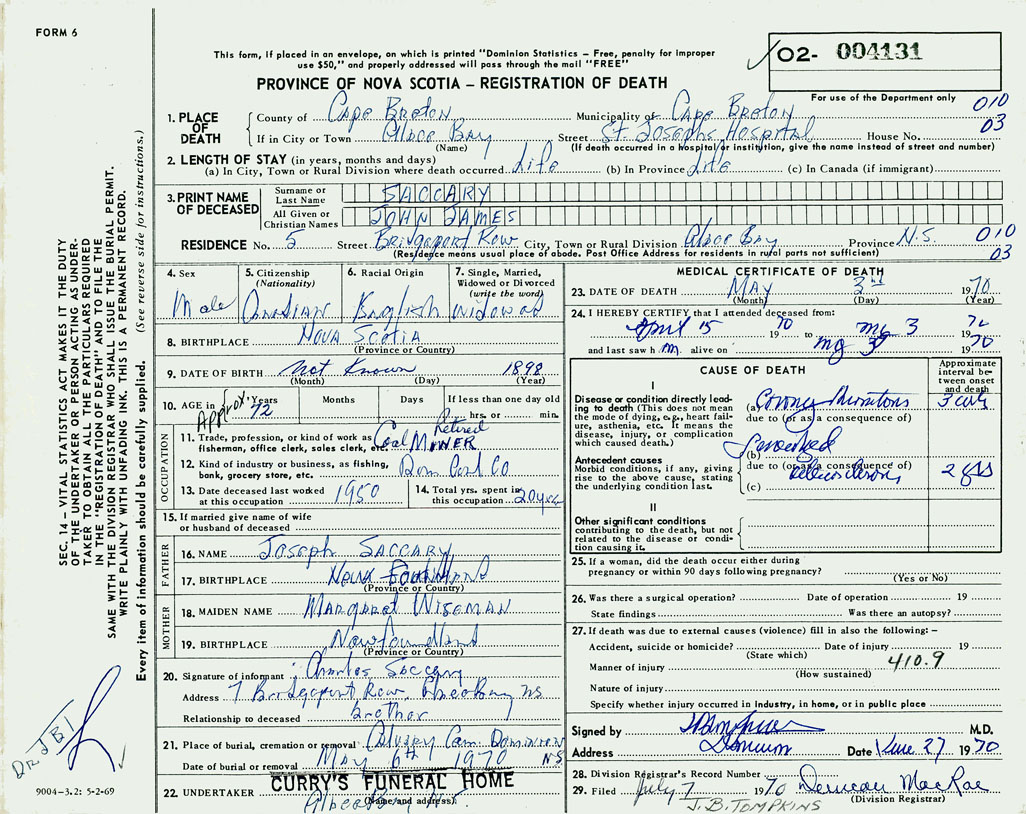 FORM 6
This form, if placed in an envelope, on which is printed "Dominion Statistics – Free, penalty for improper
use $50," and properly addressed will pass through the mail "FREE"
02- 004131
PROVINCE OF NOVA SCOTIA – REGISTRATION OF DEATH
For use of the Department only
1. PLACE OF DEATH
County of Cape Breton Municipality of Cape Breton 010
If in City or Town Glace Bay Street St. Josephs Hospital House No. 03
(Name) (If death occurred in a hospital or institution, give the name instead of street and number)
2. LENGTH OF STAY (in years, months and days)
(a) In City, Town or Rural Division where death occurred Life (b) In Province Life (c) In Canada (if immigrant)
3. PRINT NAME OF DECEASED
Surname or Last Name SACCARY
All Given or Christian Names JOHN JAMES
RESIDENCE No. 5 Street Bridgeport Row City, Town or Rural Division Glace Bay Province N.S. 010
(Residence means usual place of abode. Post Office Address for residents in rural parts not sufficient) 03
4. Sex
Male
5. Citizenship
(Nationality)
6. Racial Origin
English
7. Single, Married,
Widowed or Divorced
(write the word)
Widowed
8. BIRTHPLACE Nova Scotia
(Province or Country)
9. DATE OF BIRTH Not Known 1898
(Month) (Day) (Year)
10. AGE in Approx. 72 Years Months Days If less than one day old
hrs. or min.
OCCUPATION
Retired
11. Trade, profession, or kind of work as Coal Miner
fisherman, office clerk, sales clerk, etc.
12. Kind of industry or business, as fishing, Dom Coal Co
bank, grocery store, etc.
13. Date deceased last worked 1950
at this occupation
14. Total yrs. spent in
this occupation 20 yrs
15. If married give name of wife
or husband of deceased
FATHER
16. NAME Joseph Saccary
17. BIRTHPLACE
(Province or Country)
MOTHER
18. MAIDEN NAME Margaret Wiseman
19. BIRTHPLACE Newfoundland
(Province or Country)
20. Signature of informant Charles Saccary
Address 7 Bridgeport Row, Glace Bay NS
Relationship to deceased brother
21. Place of burial, cremation or removal Calvary Cem Dominion
Date of burial or removal May 6th 1970 NS
CURRY'S FUNERAL HOME
22. UNDERTAKER Glace Bay
(Name and address)
MEDICAL CERTIFICATE OF DEATH
23. DATE OF DEATH May 3rd 1970
(Month) (Day) (Year)
24. I HEREBY CERTIFY that I attended deceased from:
April 15 1970 to 3 19
and last saw h m. alive on 3 1970
CAUSE OF DEATH
Approximate
interval be-
tween onset
and death
I
Disease or condition directly lead-
ing to death (This does not
mean the mode of dying, e.g., heart fail-
ure, asthenia, etc. It means the
disease, injury, or complication
which caused death.)
(a)
due to (or as a consequence of)
(b)
Antecedent causes
Morbid conditions, if any, giving
rise to the above cause, stating
the underlying condition last.
due to (or as a consequence of)
(c) 2 yrs
II
Other significant conditions
contributing to the death, but not
related to the disease or condi-
tion causing it.
25. If a woman, did the death occur either during
pregnancy or within 90 days following pregnancy?
(Yes or No)
26. Was there a surgical operation? Date of operation 19
State findings Was there an autopsy?
27. If death was due to external causes (violence) fill in also the following: –
Accident, suicide or homicide? Date of injury 19
(State which)
Manner of injury 410.9
(How sustained)
Nature of injury
Specify whether injury occurred in industry, in home, or in public place
Signed by M.D.
Address Dominion Date June 27 1970
28. Division Registrar's Record Number
29. Filed July 7 1970 MacRae
(Division Registrar)
J.B. TOMPKINS
SEC. 14 – VITAL STATISTICS ACT MAKES IT THE DUTY
OF THE UNDERTAKER OR PERSON ACTING AS UNDER-
TAKER TO OBTAIN ALL THE PARTICULARS REQUIRED
IN THE "REGISTRATION OF DEATH" AND TO FILE THE
SAME WITH THE DIVISION REGISTRAR WHO SHALL ISSUE THE BURIAL PERMIT.
WRITE PLAINLY WITH UNFADING INK. THIS IS A PERMANENT RECORD.
Every item of information should be carefully supplied. (See reverse side for instructions.)
DR. J.B.T
9004-3.2: 5-2-69